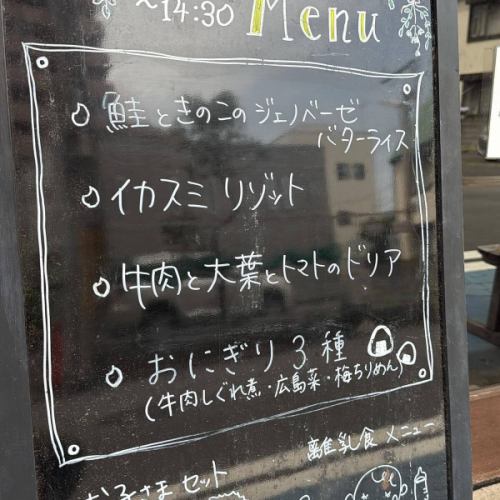 ～14:30 Menu
鮭ときのこのジェノベーゼ
バターライス
イカスミリゾット
牛肉と大葉とトマトのドリア
おにぎり3種
(牛肉しぐれ煮・広島菜・梅ちりめん)
離乳食メニュー
お子さまセット